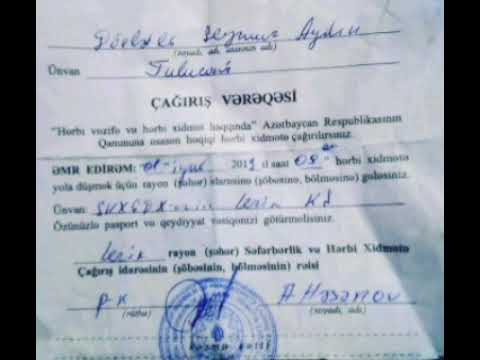 Seymur Aydın
(soyadı, adı, atasının adı)
Ünvan
ÇAĞIRIŞ VƏRƏQƏSİ
"Hərbi vəzifə və hərbi xidmət haqqında" Azərbaycan Respublikasının
Qanununa əsasən həqiqi hərbi xidmətə çağırılırsınız.
ƏMR EDİRƏM: 01 iyul 2019 il saat 08 00 hərbi xidmətə
yola düşmək üçün rayon (şəhər) idarəsinə (şöbəsinə, bölməsinə) gələsiniz.
Ünvan: SHXÇDX-nin Lerik
Özünüzlə pasport və qeydiyyat vəsiqənizi götürməlisiniz.
Lerik rayon (şəhər) Səfərbərlik və Hərbi Xidmətə
Çağırış idarəsinin (şöbəsinin, bölməsinin) rəisi
A Həsənov
(rütbə) (soyadı, adı)